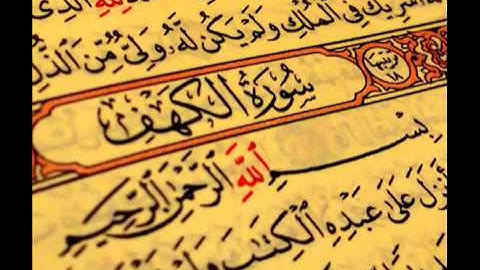 لِلَّهِ الَّذِي
شَرِيكٌ فِي الْمُلْكِ وَلَمْ يَكُن لَّهُ وَلِيٌّ مِّنَ الذُّلِّ
سُورَةُ الْكَهْفِ
بِسْمِ اللَّهِ الرَّحْمَٰنِ الرَّحِيمِ
أَنزَلَ عَلَىٰ عَبْدِهِ الْكِتَٰبَ وَلَمْ